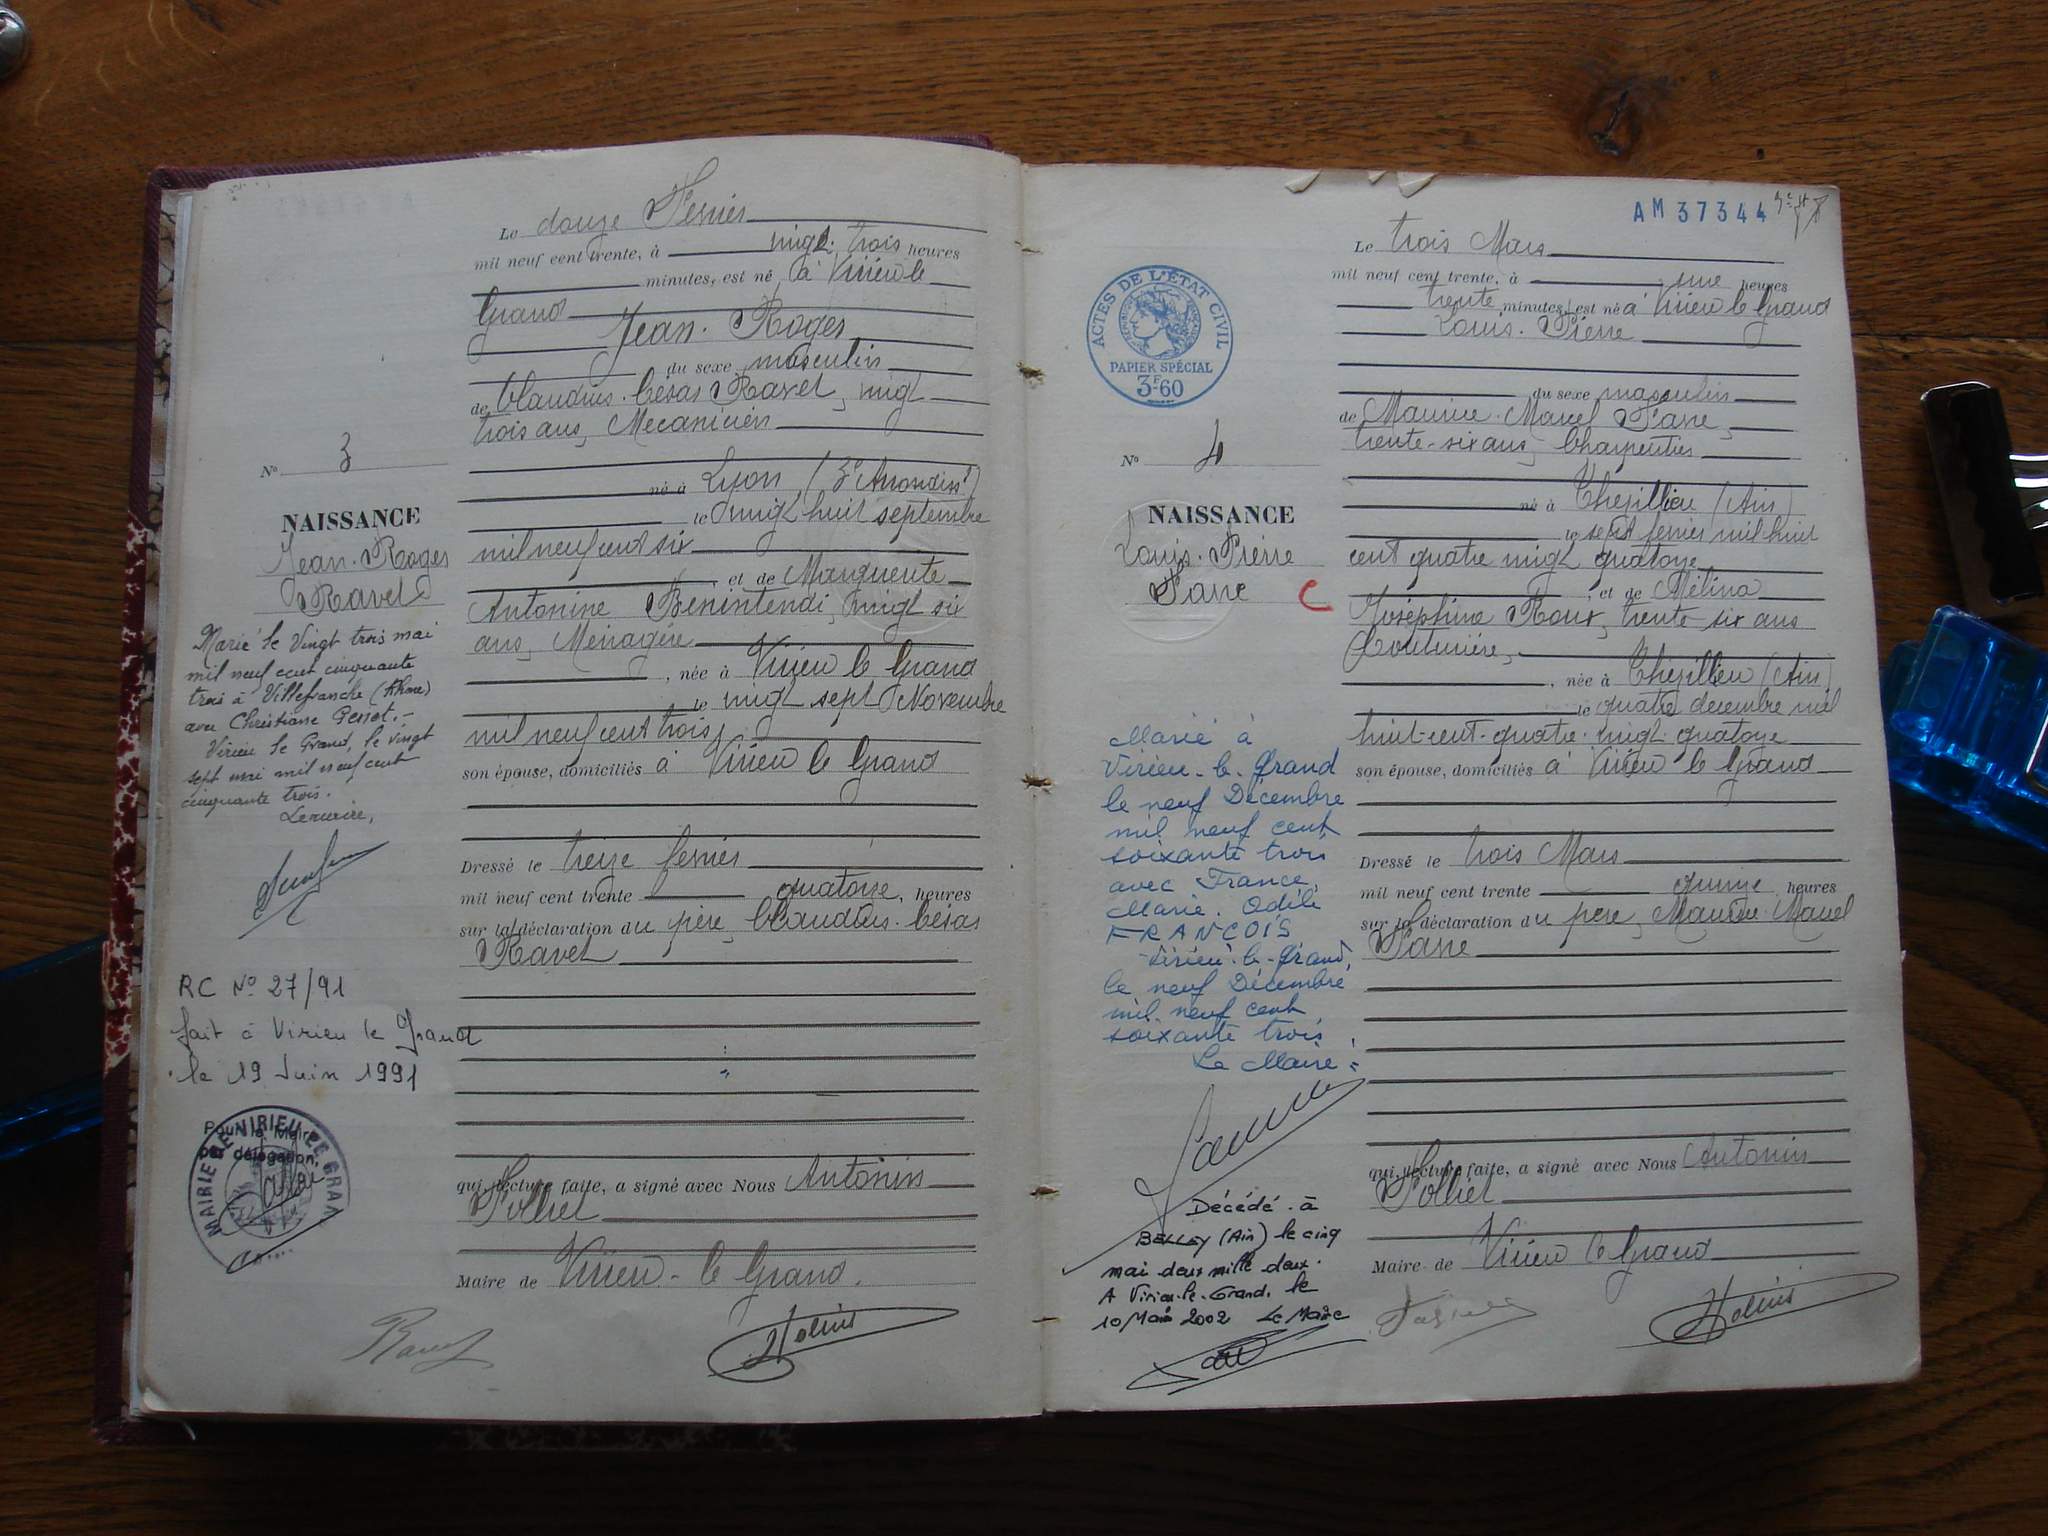 Le douze Février
mil neuf cent trente, à vingt trois heures
minutes, est né à Virieu le
Grand
Jean. Roger
du sexe masculin
de Claudius. César Ravet, vingt
trois ans, Mecanicien
né à Lyon (3e Arrondisst)
le vingt huit septembre
mil neuf cent six
et de Marguerite
Antonine Benintendi, vingt six
ans, Ménagère
, née à Virieu le Grand
le vingt sept Novembre
mil neuf cent trois,
son épouse, domiciliés à Virieu le Grand
Dressé le treize fevrier
mil neuf cent trente quatorze, heures
sur la déclaration du père, Claudius. César
Ravet
qui, lecture faite, a signé avec Nous Antonin
Polliet
Maire de Virieu - le Grand.
Ravet
No 3
NAISSANCE
Jean. Roger
Ravet
Marié le Vingt trois mai
mil neuf cent cinquante
trois à Villefranche (Rhône)
avec Christiane
Virieu le Grand, le vingt
sept mai mil neuf cent
cinquante trois.
Le maire,
RC No 27/91
fait à Virieu le Grand
le 19 Juin 1991
MAIRIE DE VIRIEU LE GRAND
Pour le Maire
par délégation,
AM 37344
ACTES DE L'ÉTAT CIVIL
PAPIER SPÉCIAL
3F60
No 4
NAISSANCE
Louis. Pierre
C
Marié à
Virieu-le-Grand
le neuf Décembre
mil neuf cent
soixante trois
avec France,
Marie. Odile
FRANCOIS
Virieu-le-Grand,
le neuf Décembre
mil neuf cent
soixante trois
Le Maire:
Décédé à
BELLEY (Ain) le cinq
mai deux mille deux.
A Virieu-le-Grand, le
10 Mai 2002 Le Maire
Le trois Mars
mil neuf cent trente, à une heures
trente minutes, est né à Virieu le Grand
Louis. Pierre
du sexe masculin
de Maurice. Marcel
trente-six ans, Charpentier
né à Thézillieu (Ain)
le sept fevrier mil huit
cent quatre vingt quatorze
, et de Mélina
Joséphine Roux, trente six ans
Couturière,
, née à Thézillieu (Ain)
le quatre decembre mil
huit-cent-quatre-vingt-quatorze
son épouse, domiciliés à Virieu le Grand
Dressé le trois Mars
mil neuf cent trente quinze heures
sur la déclaration du père, Maurice Marcel
qui, lecture faite, a signé avec Nous Antonin
Polliet
Maire de Virieu le Grand